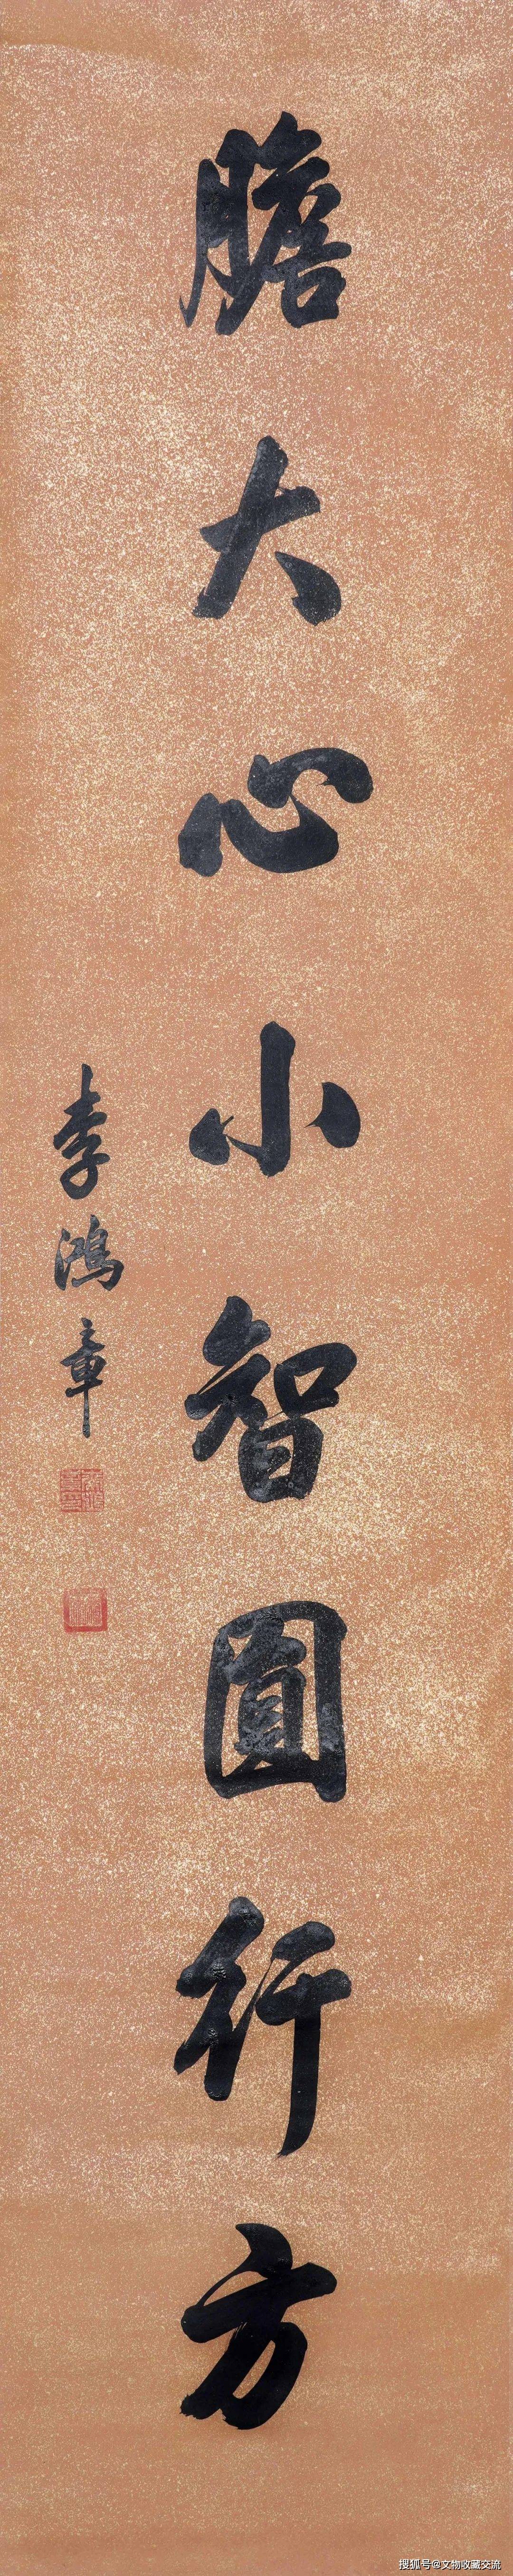 膽大心小智圓行方
李鴻章
搜狐号@文物收藏交流